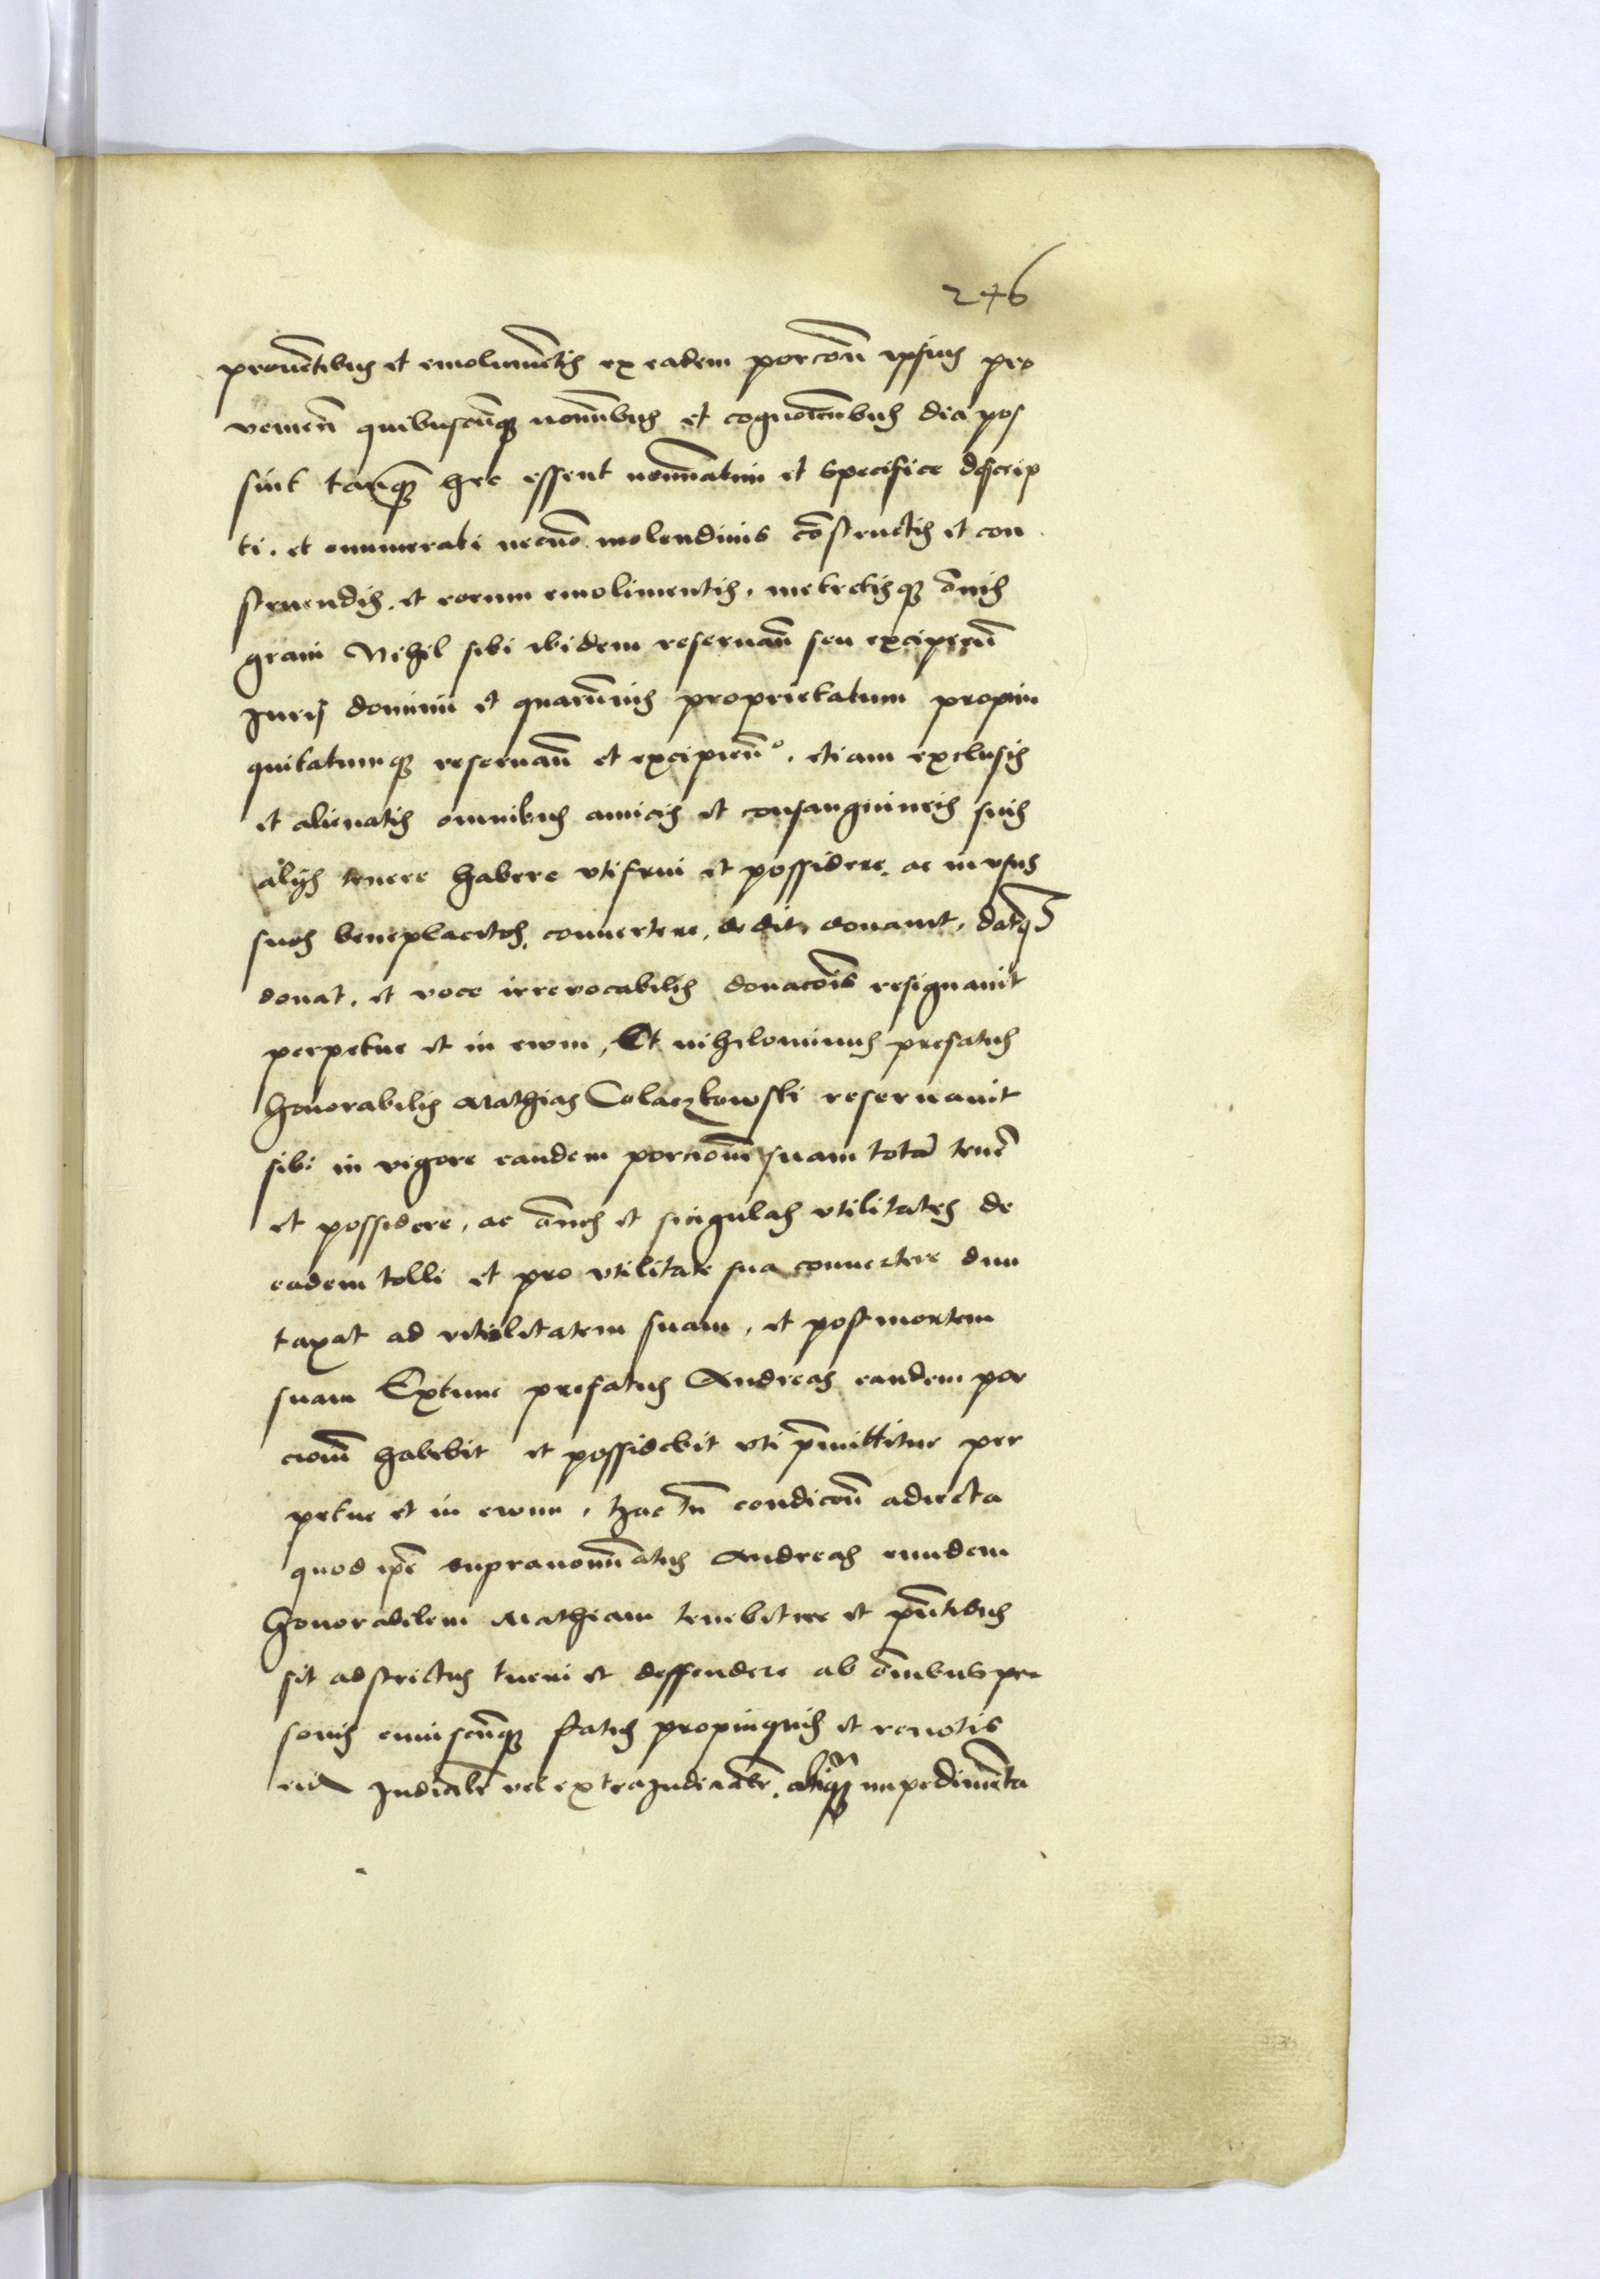 246
prouētibus et emolumētis ex eadem porcōn ipsius pro
uenien̄ quibuscūq3 nomīnibus et cognoīnibus dici pos
sint tanq̄ hec essent nomīatim et specifice descrip
ti. et enumerati necnō molendinis cōstructis et con
struendis. et eorum emolimentis. metretisq3 ōnis
grani Nihil sibi ibidem reseruan̄ seu excipien̄
Juris dominii et quarūuis proprietatum propin
quitatumq3 reseruan̄ et excipien̄. etiam exclusis
et alienatis omnibus amicis et consanguineis suis
alijs tenere habere vtifrui et possidere. ac in vsus
suos beneplacitos. conuertere. dedit donauit. datq3
donat. et voce irreuocabilis donacōis resignauit
perpetue et in ewm, Et nihilominus prefatus
honorabilis Mathias Colaczkowski reseruauit
sibi in vigore eandem porcionē suam totā tenē
et possidere, ac ōnes et singulas vtilitates de
eadem tolli et pro vtilitate sua conuertere dun
taxat ad vitalitatem suam, et post mortem
suam Extunc prefatus Andreas eandem por
cionē habebit et possidebit vti p̄mittitur per
petue et in ewm, hac tn̄ condicōn adiecta
quod ip̄e supranomīatus Andreas eundem
honorabilem Mathiam tenebitur et p̄ntibus
sit adstrictus tueri et deffendere ab ōmnibus per
sonis cuiuscūq3 status propinquis et remotis
Judicialr̄ vel extrajudicialr̄. aliq̄ impedimēta